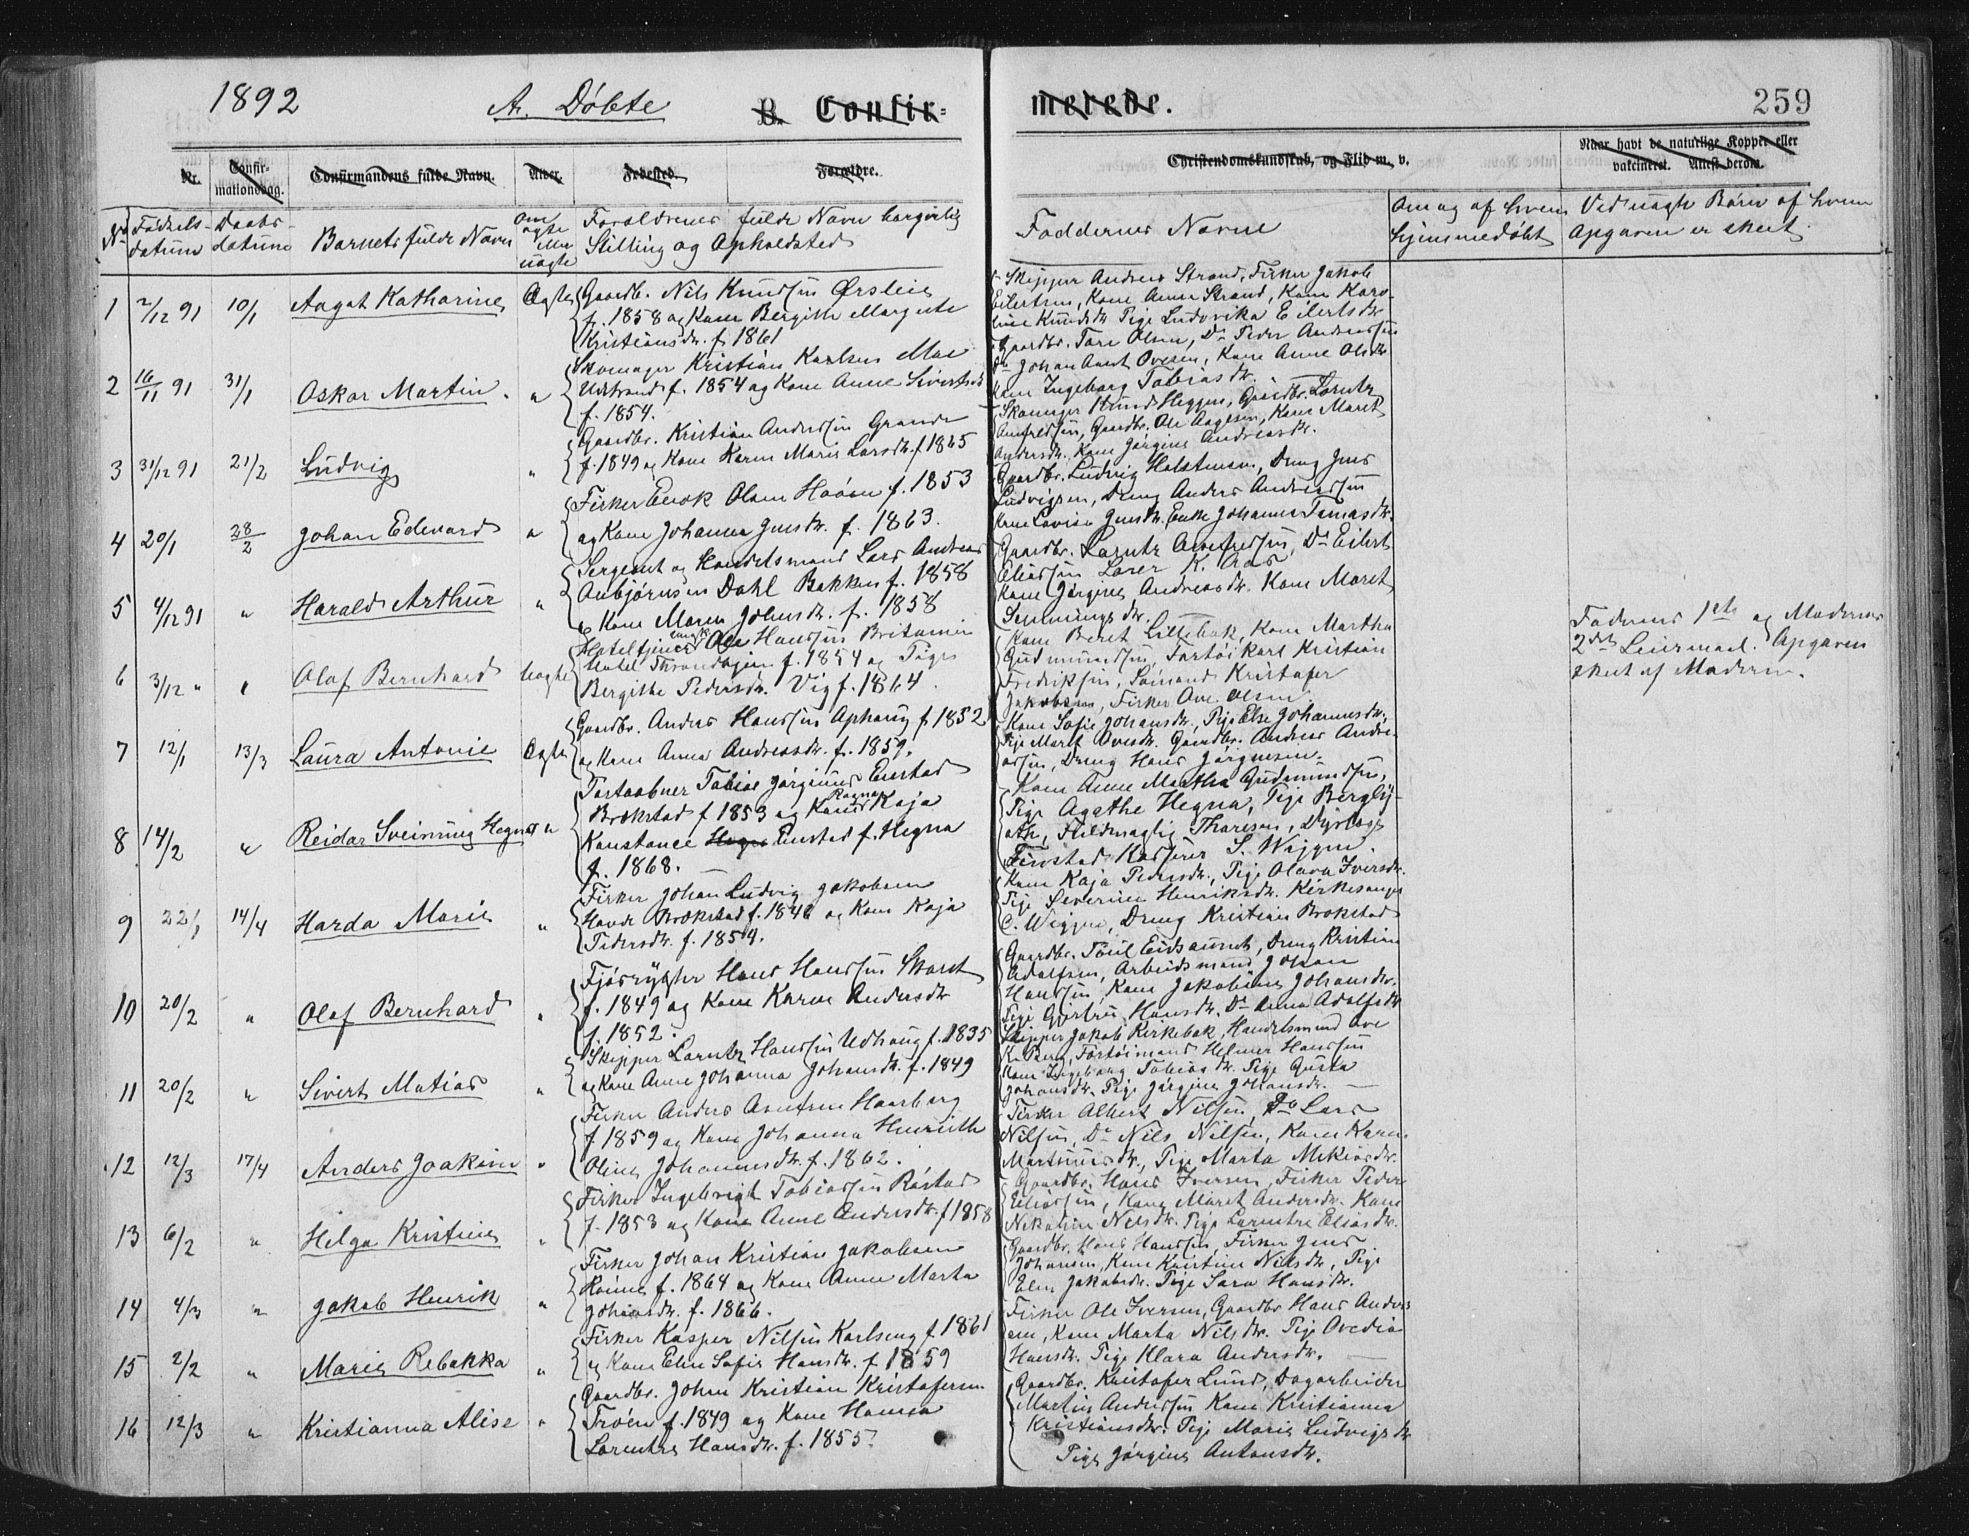 1892
A. Døbte
B. Confir-
merede.
259
Nr.
Confir-
mationsdag.
Confirmandens fulde Navn.
Alder.
Fødested.
Forældre.
Christendomskundskab, og Flid m. v.
Naar havt de naturlige Kopper eller
vaksineret. Attest derom.
Nr Fødsels-
datum
Daabs-
datum
Barnets fulde Navn
om
ægte
eller
uægte
Forældrenes fulde Navn borgerlig
Stilling og Opholdsted
Faddernes Navne
Om og af hvem
hjemmedøbt
Ved uægte Børn af hvem
Opgaven er skeet.
1 2/12 91 10/1 Aagot Katharine Ægte
Gaardb. Nils Knudsen Ørsleie
f. 1858 og Kone Bergithe Margrete
Kristiansdr. f. 1861
Skipper Andreas Strand, Fisker Jakob
Eilertsen, Kone Anna Strand, Kone Karo-
line Knudsdr. Pige Ludovika Eilertsdr.
2 16/11 91 31/1 Oskar Martin "
Skomager Kristian Karlsen Moe
Udstrand f. 1854 og Kone Anne Sivertsdr.
f. 1854.
Gaardbr. Tore Olsen, Do Peder Andreassen
Do Johan Arnt Ovesen, Kone Anne Olsdr.
Kone Ingeborg Tobiasdr.
3 31/12 91 21/2 Ludvig "
Gaardbr. Kristian Andersen Grande
f. 1849 og Kone Karen Marie Larsdr. f. 1865
Skomager Heggen, Gaardbr. Lorntz
Arnfredsen, Gaardbr. Ole Aagesen, Kone Maret
Andersdr. Kone Jørgine Andreasdr.
4 20/1 28/2 Johan Edevard "
Fisker Enok Olsen f. 1853
og Kone Johanna Jensdr. f. 1863.
Gaardbr. Ludvig Holstman, Dreng Jens
Ludvigsen, Dreng Anders Andreassen
Kone Lovise Jensdr. Enke Johanna Tomasdr.
5 4/12 91 " Harald Arthur "
Sergeant og Handelsmand Lars Andreas
Anbjørnsen Dahl Bakken f. 1858
og Kone Maren Johnsdr. f. 1858
Gaardbr. Lorntz Arnfredsen, Do Eilert
Eliassen Lærer K. Aas
Kone Jørgine Andreasdr. Kone Maret
6 3/12 " " Olaf Bernhard Uægte
Hoteltjener Ole Hansen Britannia
Hotel Throndhjem f. 1854 og Pige
Bergithe Pedersdr. Vig f. 1864.
Kone Beret Lillebak, Kone Martha
Gudmundsen, Fartøikarl Kristian
Fredriksen, Sømand Kristofer
Jakobsen, Fisker Ove Olsen
Faderens 1ste og Moderens
2det Leiermaal. Opgaven
skeet af Moderen.
7 12/1 13/3 Laura Antonie Ægte
Gaardbr. Anders Hansen Ophaug f. 1852
og Kone Anna Andreasdr. f. 1859.
Kone Sofie Johansdr., Pige Else Johannesdr.
Pige Marit Ovesdr. Gaardbr. Andreas Andre-
assen, Dreng Hans Jørgensen.
8 14/2 " Reidar Sveinung Hegna "
Postaabner Tobias Jørginus Eenstad
Brækstad f. 1853 og Kone Ragna Kaja
Konstance Hegna Eenstad f. Hegna
f. 1868.
Kone Anne Martha Gudmundsen,
Pige Agathe Hegna, Pige Bergljot
Fuldmægtig Thoresen, Dyrlæge
Finstad Kasserer S. Wigger.
9 22/1 14/4 Harda Marie "
Fisker Johan Ludvig Jakobsen
Havde Brækstad f. 1846 og Kone Kaja
Pedersdr. f. 1854.
Kone Kaja Pedersdr., Pige Olava Iversdr.
Pige Severine Henriksdr. Kirkesanger
C. Wigger, Dreng Kristian Brækstad
10 20/2 " Olaf Bernhard "
Fjøsrøkter Hans Hansen
f. 1849 og Kone Karen Andersdr.
f. 1852.
Gaardbr. Poul Eidsaunet, Dreng Kristian
Adolfsen, Arbeidsmand Johan
Hansen, Kone Jakobine Johansdr.
Pige Gjertru Hansdr. Do Anna Adolfsdr.
11 20/2 " Sivert Matias "
Skipper Lorntz Hansen Udhaug f. 1835
og Kone Anne Johanna Johansdr. f. 1849
Skipper Jakob Kirkebak, Handelsmand Ove
K. Berg, Fartøimand Helmer Hansen
Kone Ingeborg Tobiasdr. Pige Gusta
Johansdr. Pige Jørgine Johansdr.
12 12/3 17/4 Anders Joakim "
Fisker Anders Arntsen Haarberg
f. 1859 og Kone Johanna Henriette
Oline Johannesdr. f. 1862.
Fisker Albert Nilsen, Do Lars
Nilsen, Do Nils Nilsen, Kone Karen
Martinusdr., Pige Marta Mikiasdr.
13 6/2 " Helga Kristine "
Fisker Ingebrigt Tobiassen Røstad
f. 1853 og Kone Anne Andersdr. f. 1858
Gaardbr. Hans Iversen, Fisker Peder
Eliassen, Kone Maret Andersdr. Kone
Nikoline Nilsdr. Pige Larntze Eliasdr.
14 4/3 " Jakob Henrik "
Fisker Johan Kristian Jakobsen
f. 1864 og Kone Anne Marta
Johansdr. f. 1866.
Gaardbr. Hans Hansen, Fisker Jens
Johansen, Kone Kristine Nilsdr., Pige
Elen Jakobsdr. Pige Sara Hansdr.
15 2/2 " Marie Rebekka "
Fisker Kasper Nilsen Karlseng f. 1861
og Kone Elen Sofie Hansdr. f. 1859
Fisker Ole Iversen, Gaardbr. Hans Anders-
en, Kone Marta Nilsdr. Pige Ovedia
Hansdr. Pige Klara Andersdr.
16 12/3 " Kristianna Alise "
Gaardbr. Johan Kristian Kristofersen
Trøen f. 1849 og Kone Hansea
Larntze Hansdr. f. 1855.
Gaardbr. Kristofer Lund, Dagarbeider
Martin Andersen Kone Kristianna
Kristiansdr. Pige Marie Ludvigsdr.
Pige Jørgine Antonsdr.